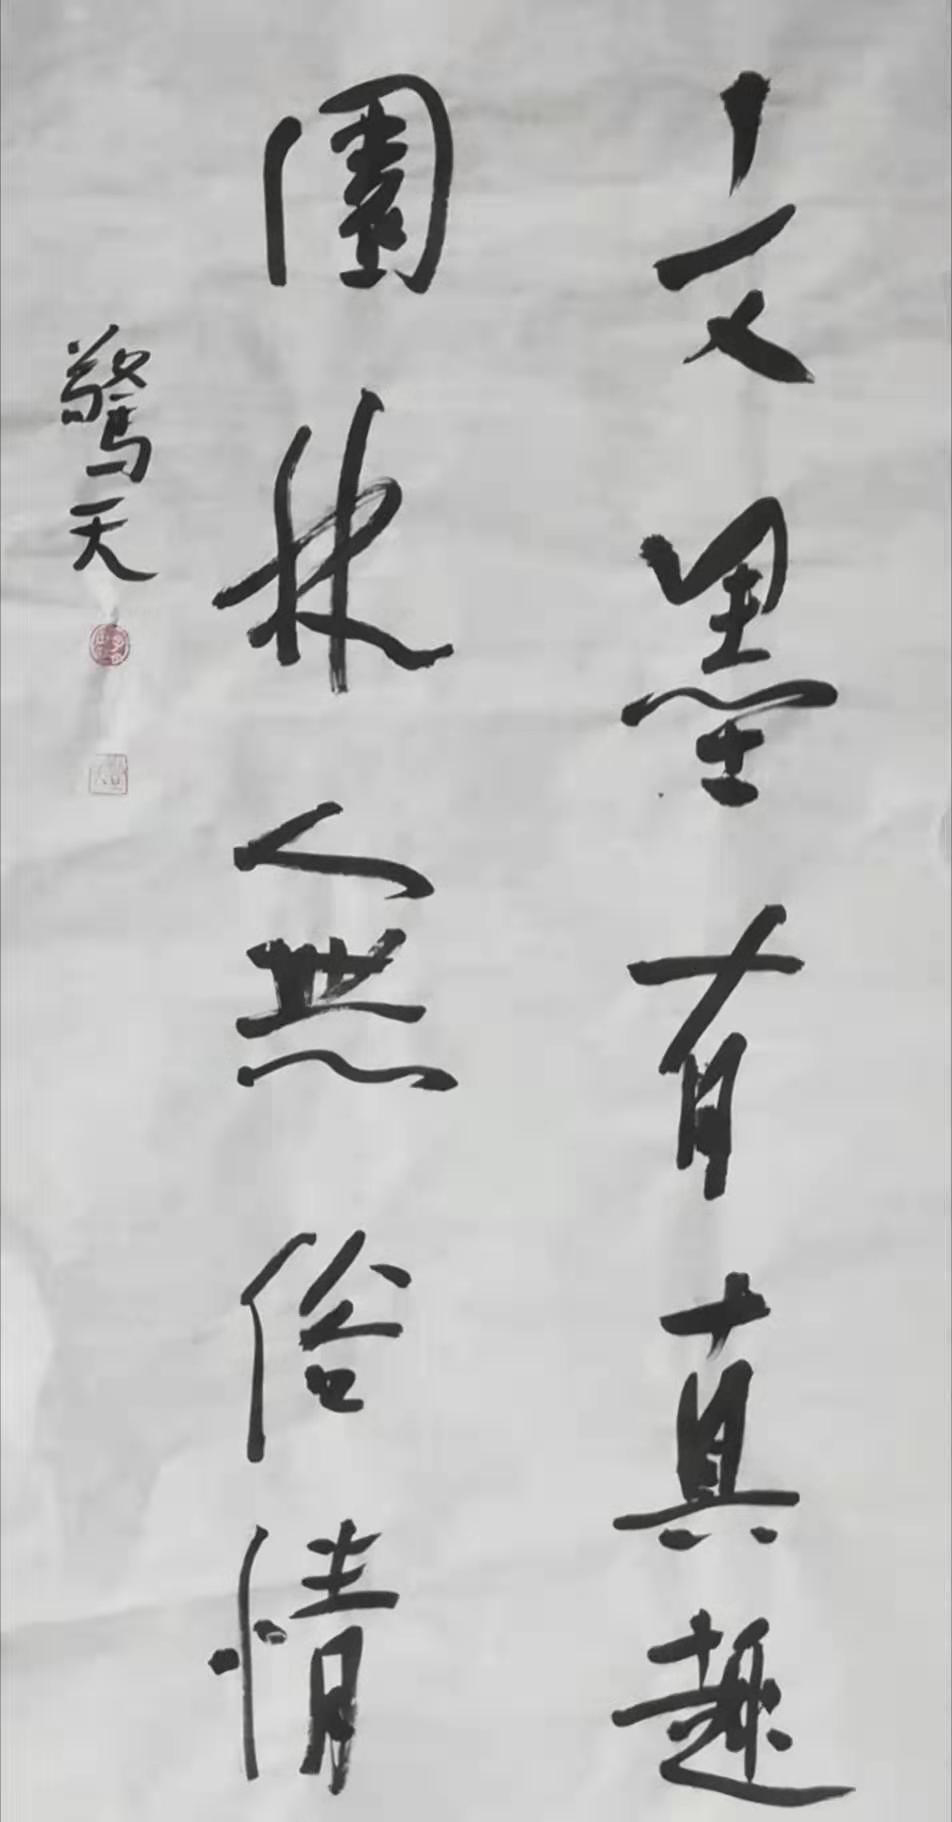 文墨有真趣
園林無俗情
驚天